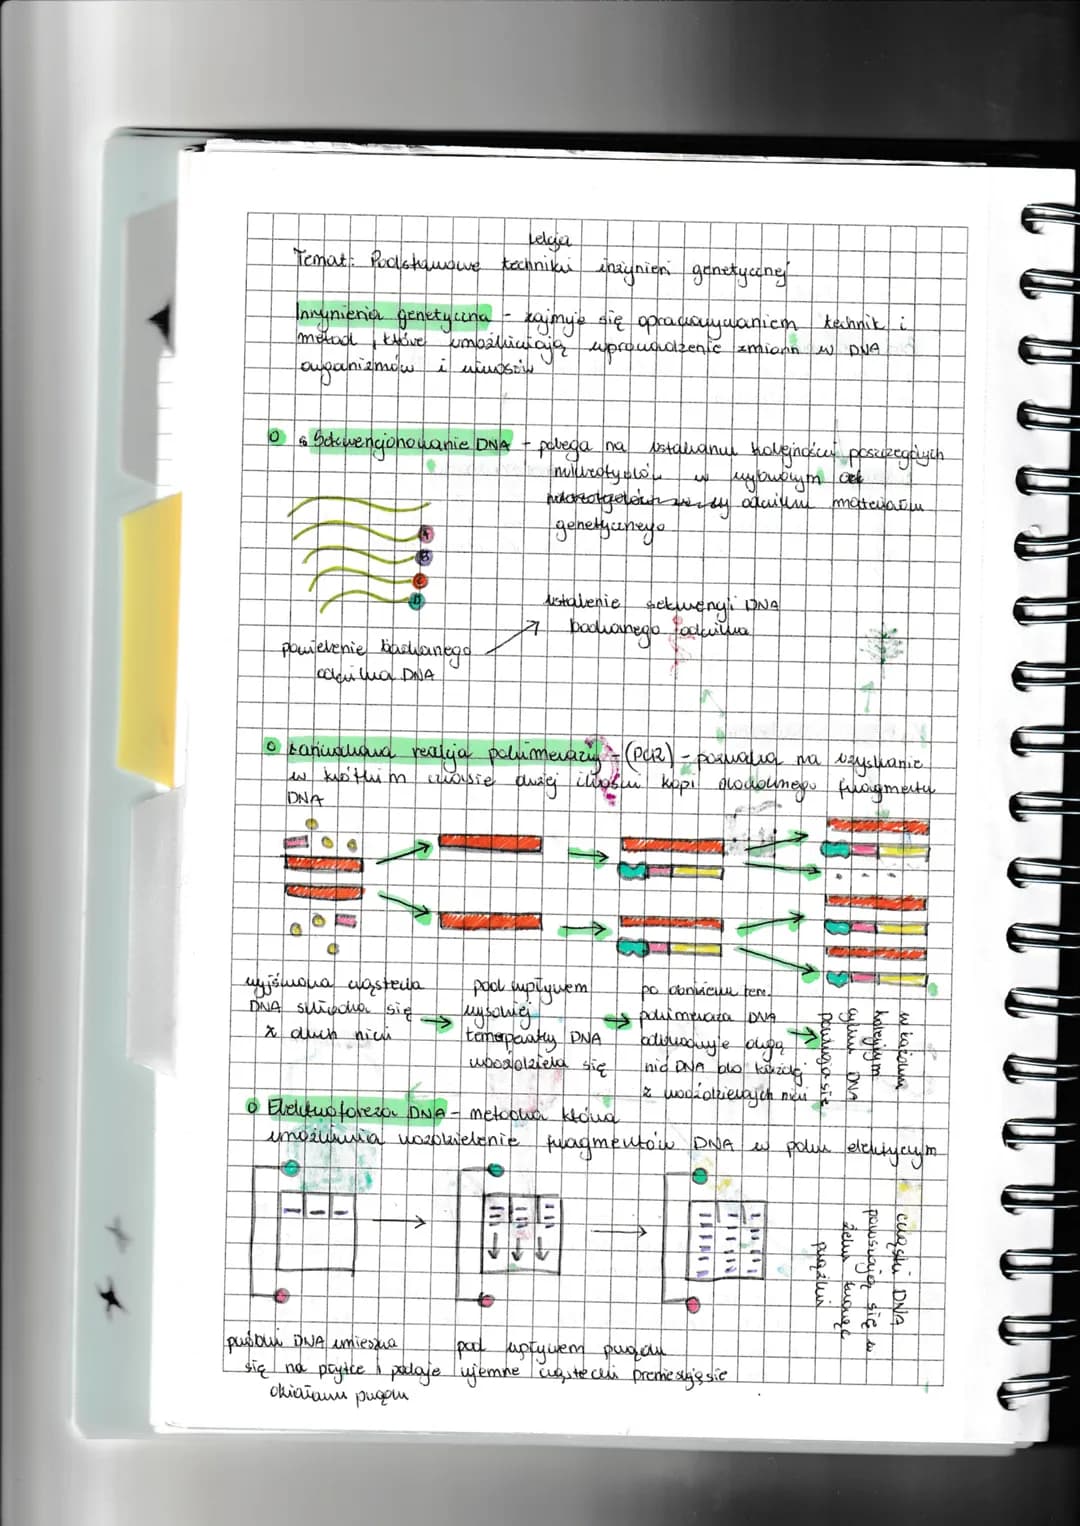 Lekcja
Temat: Podstawowe techniki inżynieri genetycznej
Inżynieria genetyczna - zajmuje się opracowywaniem technik i
metod, które umożliwiają wprowadzenie zmiann w DNA
organizmów i wirusów
Sekwencjonowanie DNA - polega na ustalaniu kolejności poszczególnych
nukleotydów w wybranym
odcinku materiału
genetycznego
A
B
C
D
ustalenie sekwencji DNA
badanego odcinka
powielenie badanego
odcinka DNA
Łańcuchowa reakcja polimerazy - (PCR) - pozwala na uzyskanie
w krótkim czasie dużej ilości kopi dodanego fragmentu
DNA
wyjściowa cząsteczka
DNA składa się
z dwóch nici
pod wpływem
wysokiej
temperatury DNA
rozdziela się
po obniżeniu tem.
polimeraza DNA
odbudowuje drugą
nić DNA dla każdej
z rozdzielonych nici
w każdym
kolejnym
cyklu DNA
powiela się
Elektroforeza DNA - metoda która
umożliwia rozdzielenie fragmentów DNA w polu elektrycznym
próbki DNA umieszcza
się na płytce i podaje
działaniu prądu
pod wpływem prądu
ujemne cząsteczki przemieszczają się
cząstki DNA
poruszają się w
żelu tworząc
prążki